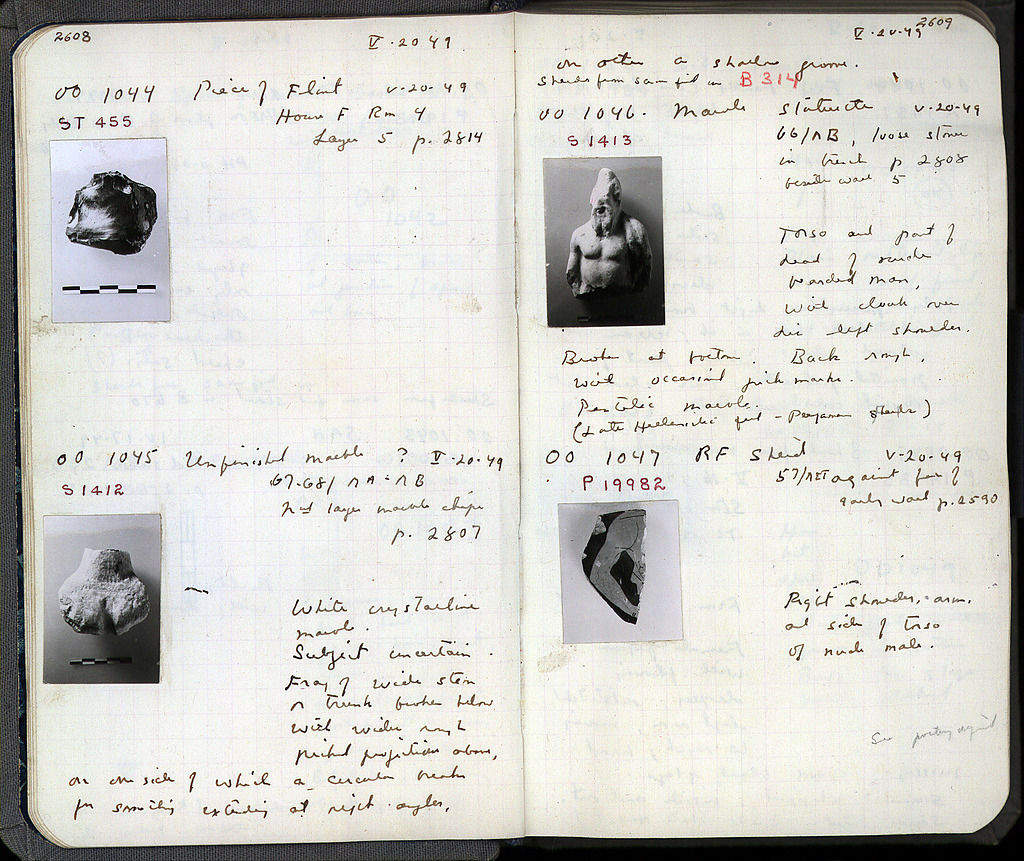 2608
V·20·49
OO 1044 Piece of Flint V-20-49
ST 455
House F Rm 4
Layer 5 p. 2814
OO 1045 Unfinished marble ? V-20-49
S 1412
67-68/ΛA-ΛB
2nd layer marble chips
p. 2807
White crystalline
marble.
Subject uncertain.
Frag of wide stem
or trunk broken below
with wider rough
picked projection above,
on one side of which a circular break
for something extending at right angles,
2609
V-20-49
on other a shallow groove.
Sherds from same fill in B 314
OO 1046. Marble Statuette V-20-49
S 1413
66/ΛB, loose stone
in trench p 2808
beside wall 5
Torso and part of
head of nude
bearded man,
with cloak over
his left shoulder.
Broken at bottom. Back rough,
with occasional pick marks.
Pentelic marble.
(Late Hellenistic fill - Pergamene)
OO 1047 RF Sherd V-20-49
P 19982
57/ against face of
early wall p. 2590
Right shoulder, arm,
and side of torso
of nude male.
See pottery